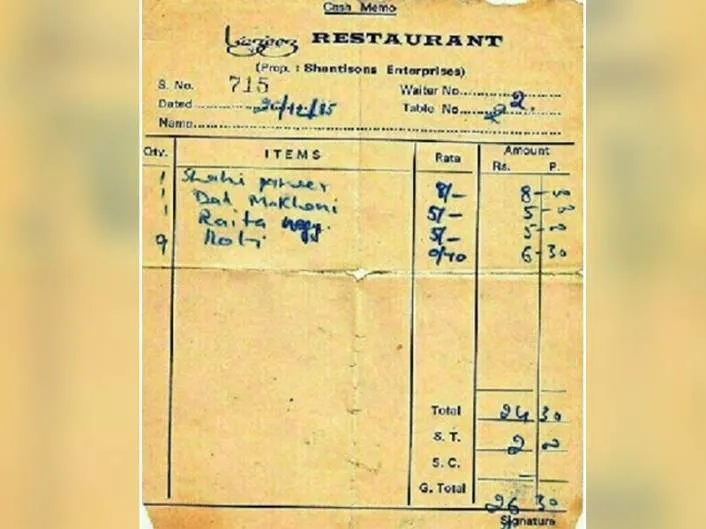 Cash Memo
Lazeez RESTAURANT
(Prop. : Shantisons Enterprises)
S. No. 715 Waiter No.
Dated 20/12/85 Table No. 22.
Name
Qty. ITEMS Rate Amount
Rs. P.
1 Shahi paneer 8/- 8 - 00
1 Dal Makhani 5/- 5 - 00
1 Raita 5/- 5 - 00
9 Roti 0/70 6 - 30
Total 24 30
S. T. 2 00
S. C.
G. Total 26 30
Signature